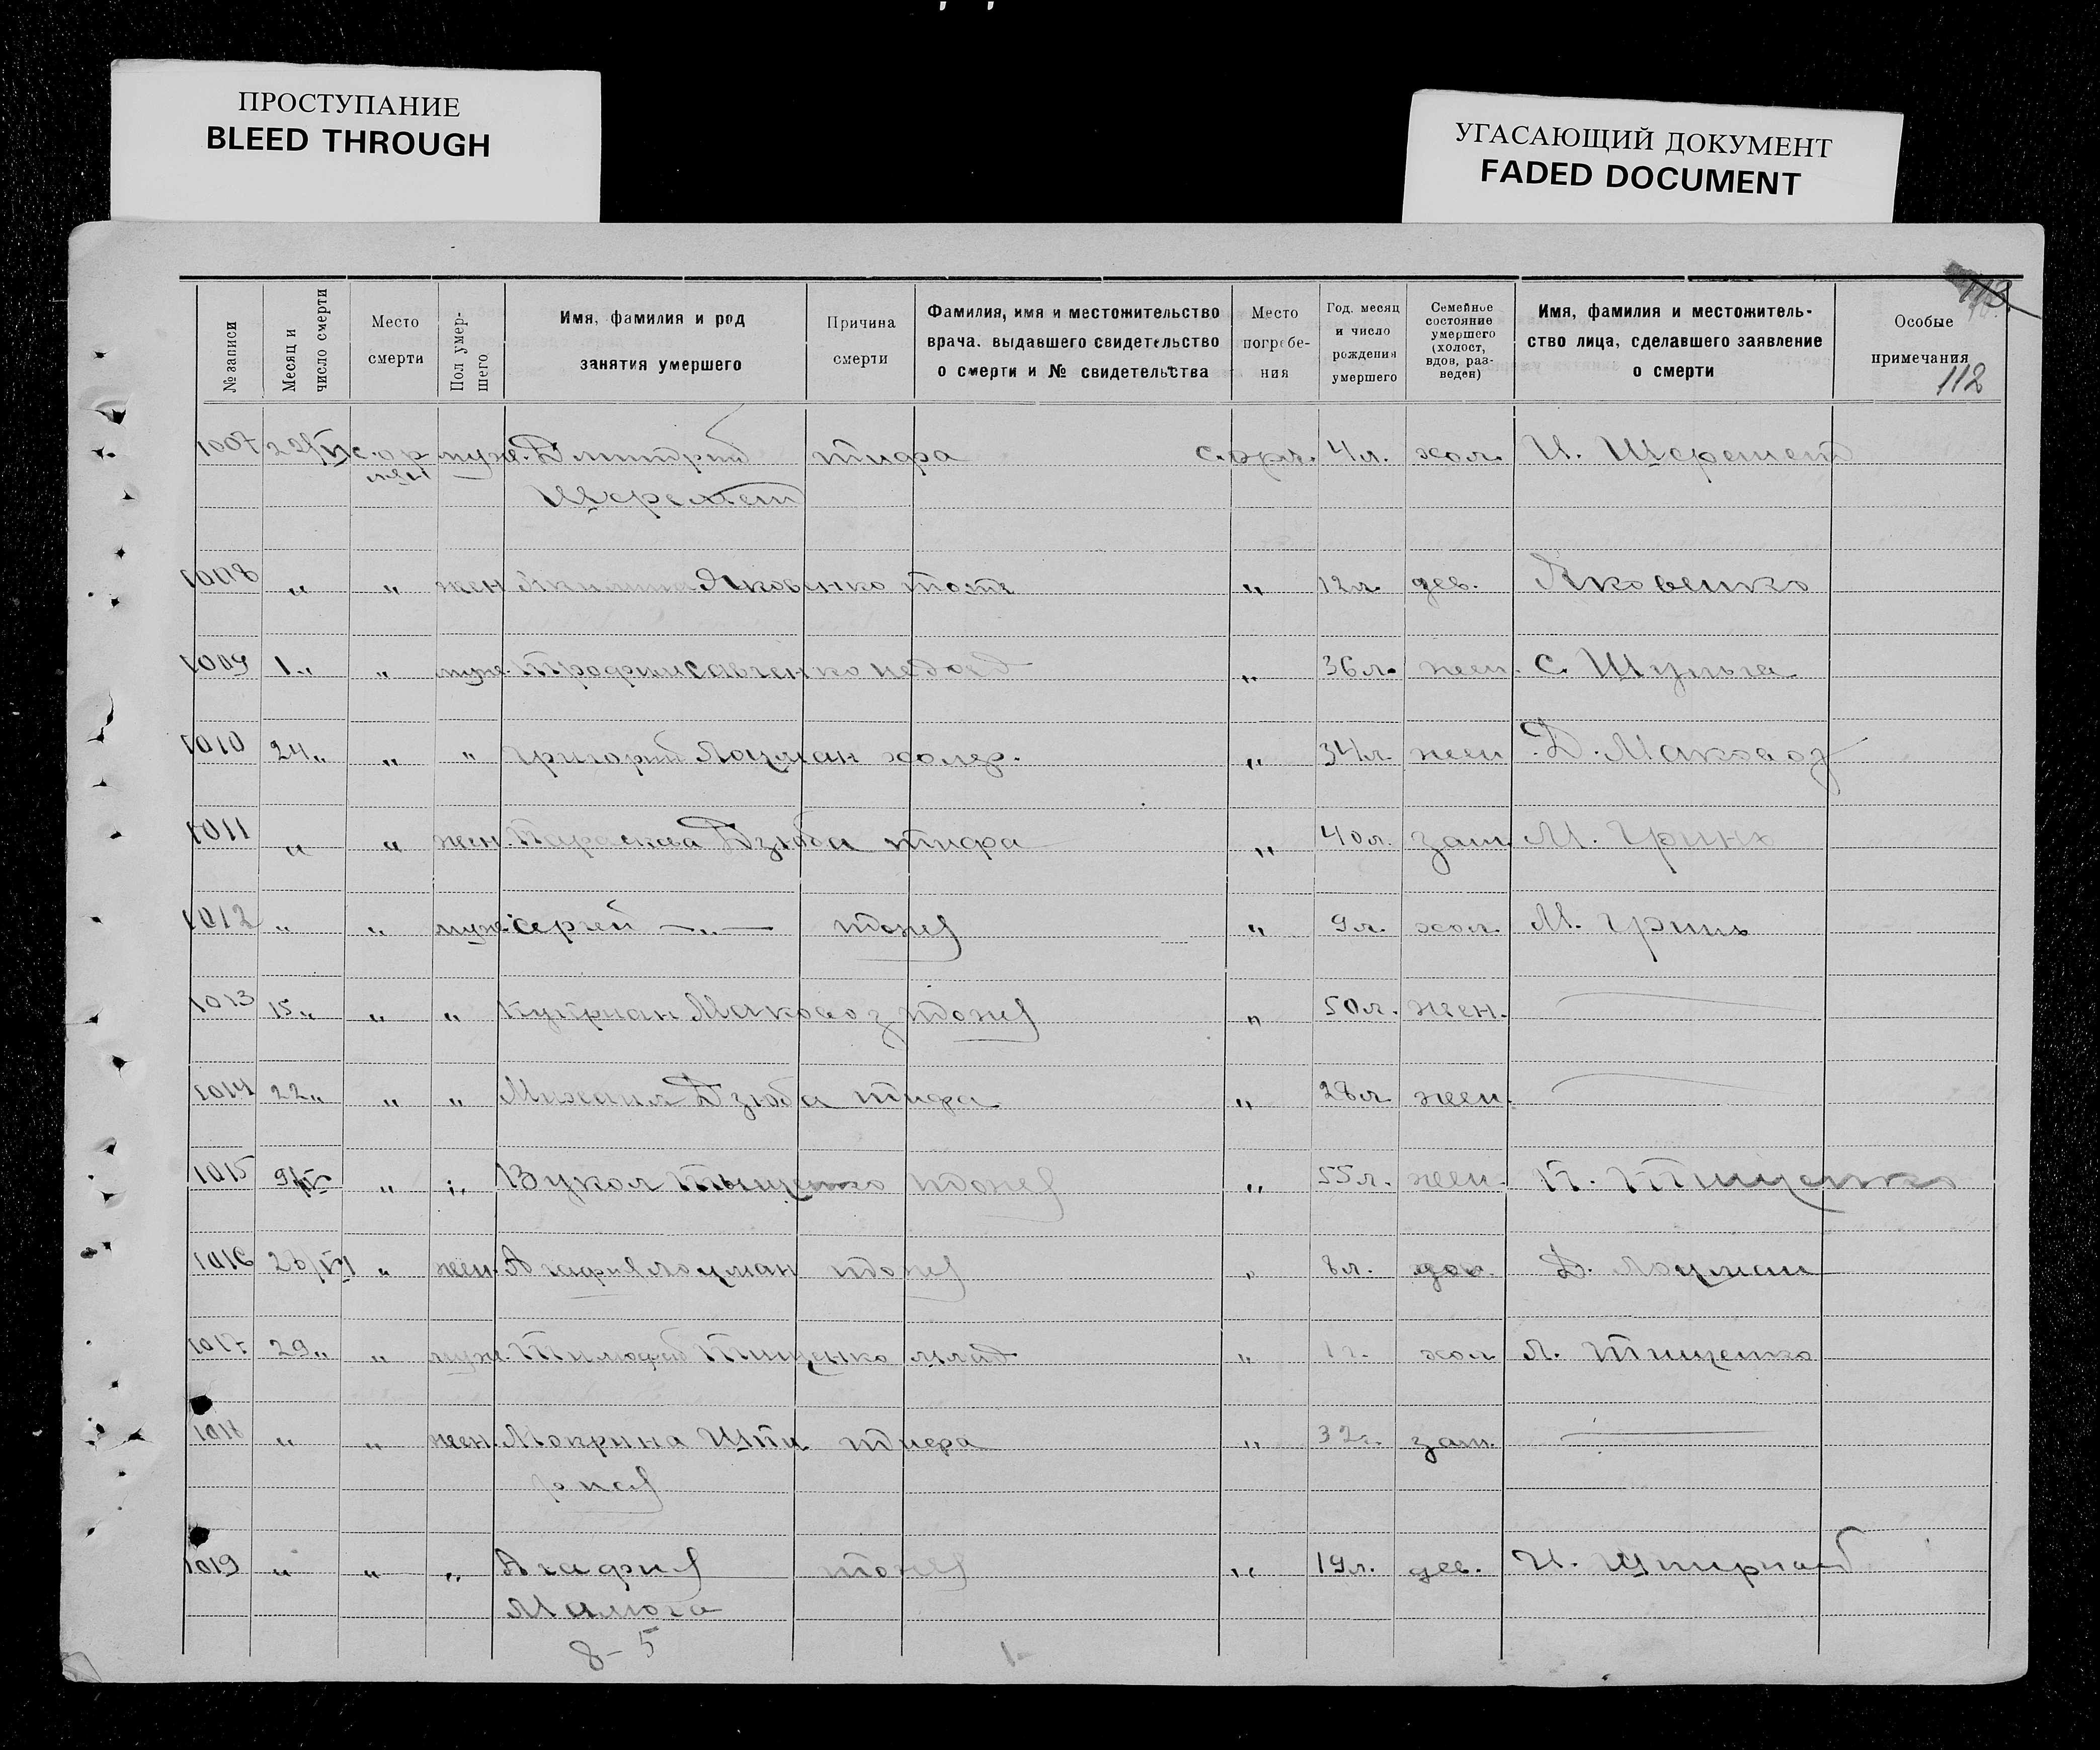 ПРОСТУПАНИЕ
BLEED THROUGH
УГАСАЮЩИЙ ДОКУМЕНТ
FADED DOCUMENT
№ записи
Месяц и
число смерти
Место
смерти
Пол умер-
шего
Имя, фамилия и род
занятия умершего
Причина
смерти
Фамилия, имя и местожительство
врача. выдавшего свидетельство
о смерти и № свидетельства
Место
погребе-
ния
Год. месяц
и число
рождения
умершего
Семейное
состояние
умершего
(холост,
вдов, раз-
веден)
Имя, фамилия и местожитель-
ство лица, сделавшего заявление
о смерти
Особые
примечания
112
1007 муж. Дмитрий тифа 4л. хол. И. Шеремет
Шеремет
1008 " " жен Яковенко тоже " 12л. дев. Яковенко
1009 1" " муж. Трофим Савченко " 36л. жен. С. Шульга
1010 24" " " Григорий Лоцман холер. " 34л. жен Д. Маковоз
1011 " " жен. Параскева Дзюба тифа " 40л. зам. М. Гринь
1012 " " муж Сергей —"— тоже " 9л. хол. М. Гринь
1013 15" " " Куприан Маковоз тоже " 50л. жен.
1014 22" " " Михаил Дзюба тифа " 28л. жен.
1015 " " Вукол Тищенко тоже " 55л. жен. П. Тищенко
1016 26/VI " жен. Агафия Лоцман тоже " 8л. Д. Лоцман
1017 29" " муж. Тимофей Тищенко млад " 1г. хол Л. Тищенко
1018 " " жен. Мокрина Шпи тифа " 32г. зам.
1019 " " " Агафия тоже " 19л. дев. И.
Малюга
8-5
1-